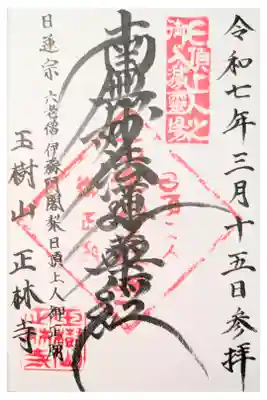 令和七年三月十五日参拝
日頂上人
御入滅霊場
南無妙法蓮華経
日蓮宗 六老僧 伊予阿闍梨日頂上人御正廟
玉樹山 正林寺